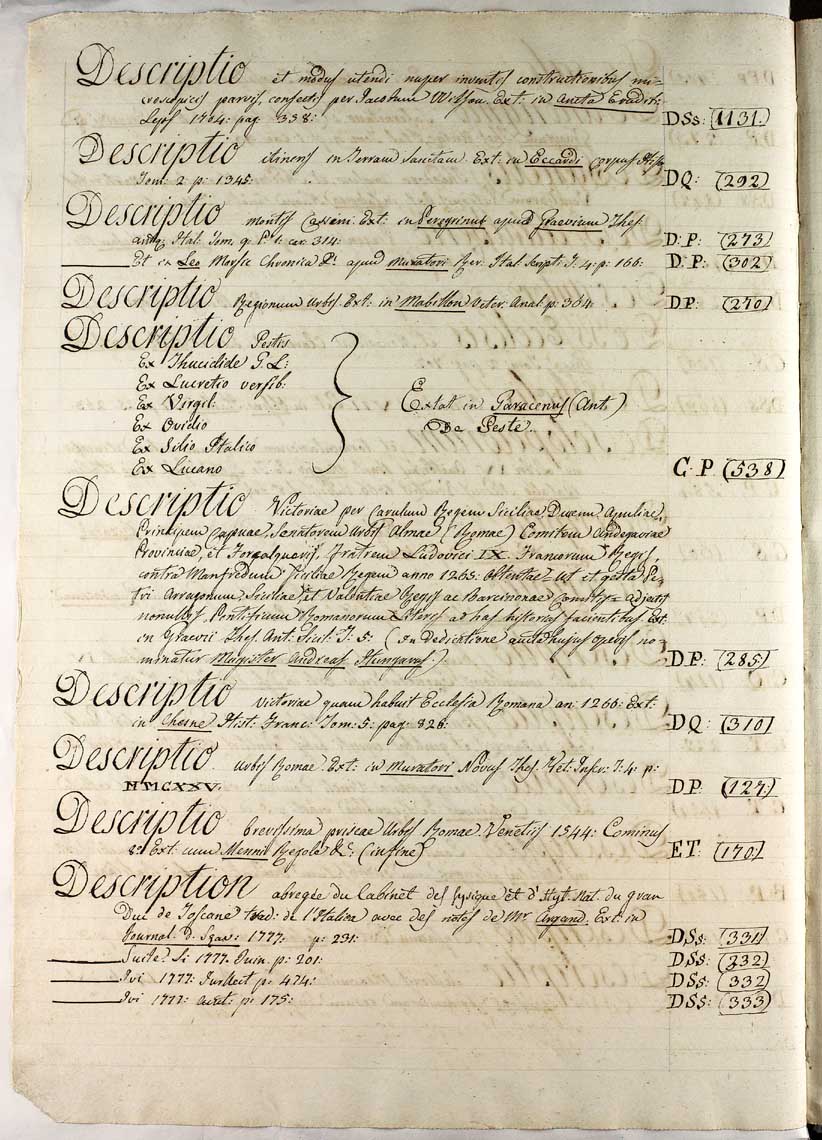 Descriptio et modus utendi nuper inventis constructionibus mi=
croscopiis parvis, confectis per Jacobum Wilson. Ext: in Aucta Erudit:
Lips: 1704: pag: 338: DSs: (1131.)
Descriptio itineris in Terram Sanctam. Ext: in Eccardi Corpus Histor:
Tom. 2 p: 1345: DQ: (292)
Descriptio montis Cassini. Ext: in Peregrinus apud Graevium Thes:
antiq: Ital: Tom. 9. P. 1: car: 314: D: P: (273)
Et ex Leo Marsic Chronica &: apud Muratori Rer. Ital. Script: T. 4: p: 166: D: P: (302)
Descriptio Regionum Urbis. Ext: in Mabillon Veter. Anal. p: 364: DP: (270)
Descriptio Pestis
Ex Thucidide G. L:
Ex Lucretio versib:
Ex Virgil:
Ex Ovidio
Ex Silio Italico
Ex Lucano
Extat in Paracenus (Ant:)
De Peste.
C. P. (538)
Descriptio Victoriae per Carulum Regem Siciliae Ducem Apuliae,
Principem Capuae, Senatorem Urbis Almae (Romae) Comitem Andegaviae
Provinciae, et Forcalquerii, fratrem Ludovici IX. Francorum Regis,
contra Manfredum Siciliae Regem anno 1265: obtentae = ut et gesta Pe=
tri Arragonum, Siciliae, et Valentiae Regis ac Barcinonae Comitis = adjectis
nonullis Pontificum Romanorum Literis ad has historias facientibus. Ext:
in Graevii Thes. Ant: Sicil: T: 5: (in Dedictione auctor hujus operis no=
minatur Magister Andreas Hungarus.) D. P. (285)
Descriptio victoriae quam habuit Ecclesia Romana an: 1266: Ext:
in Chesne Hist: Franc: Tom: 5: pag: 826: DQ: (310)
Descriptio Urbis Romae. Ext: in Muratori Novus Thes. Vet: Inscr: T: 4: p:
MMCXXV. DP. (127)
Descriptio brevissima priscae Urbis Romae. Venetiis 1544: Cominus
8: Ext. cum Mennii Regole &: (in fine) ET. (170)
Description abregée du Cabinet des fysique et d'Hyst: Nat. du gran
Duc de Toscane trad: de l'Italien avec des notes de Mr Argand. Ext: in
Journal d. Sçav: 1777: p: 231: DSs: (331)
Suite: Si 1777. Juin: p: 201: DSs: (232)
Ivi 1777: Jurllect p: 474: DSs: (332)
Ivi 1777: aout: p: 175: DSs: (333)